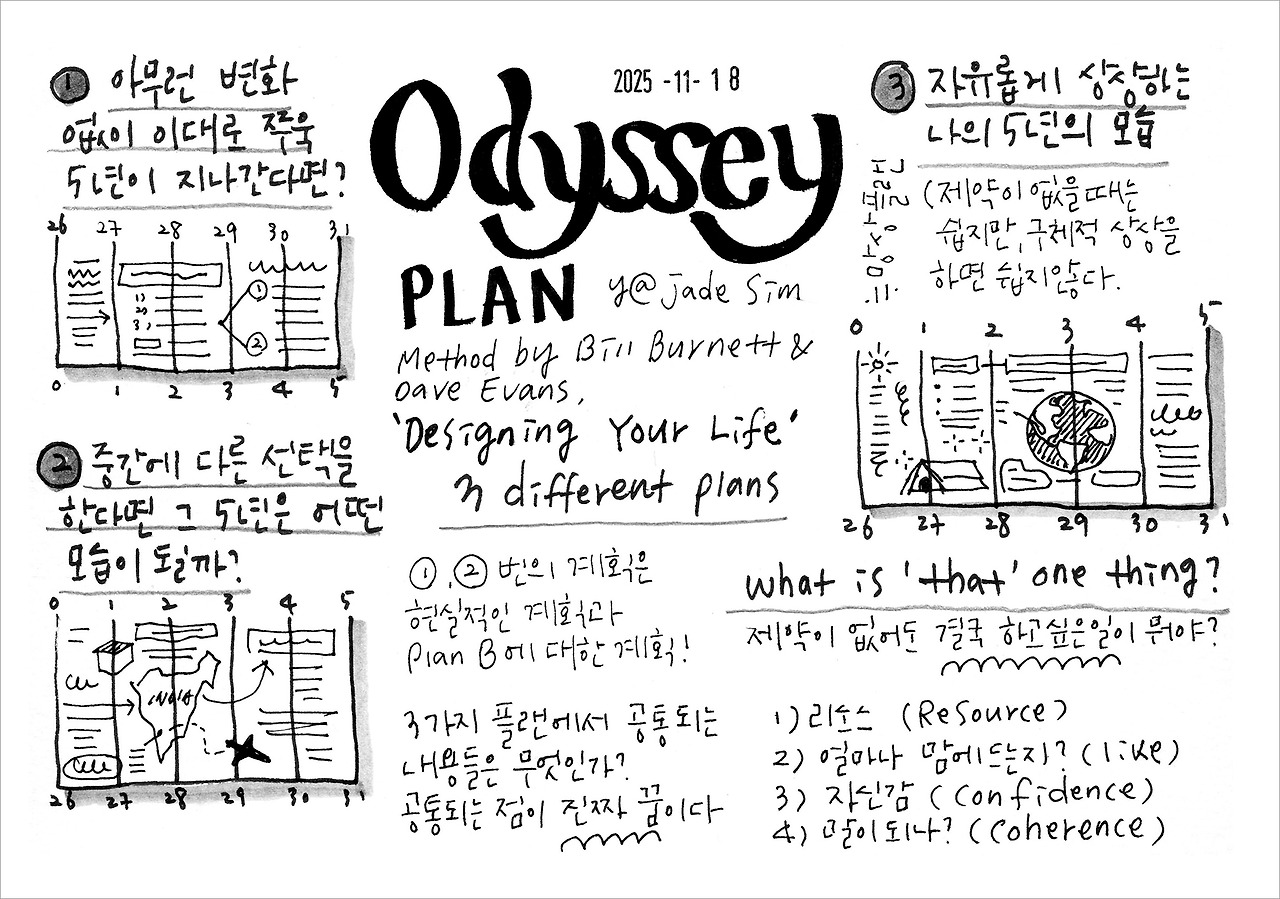 2025-11-18
Odyssey
PLAN
y@jade Sim
Method by Bill Burnett &
Dave Evans,
'Designing Your Life'
3 different plans
① 아무런 변화
없이 이대로 쭈욱
5년이 지나간다면?
26 27 28 29 30 31
1)
2)
3)
①
②
0 1 2 3 4 5
② 중간에 다른 선택을
한다면 그 5년은 어떤
모습이 될까?
0 1 2 3 4 5
INDIA
26 27 28 29 30 31
①,② 번의 계획은
현실적인 계획과
Plan B에 대한 계획!
3가지 플랜에서 공통되는
내용들은 무엇인가?
공통되는 점이 진짜 꿈이다
③ 자유롭게 상상하는
나의 5년의 모습
(제약이 없을때는
쉽지만, 구체적 상상을
하면 쉽지않다.
0 1 2 3 4 5
26 27 28 29 30 31
what is 'that' one thing?
제약이 없어도 결국 하고싶은일이 뭐야?
1) 리소스 (Resource)
2) 얼마나 맘에드는지? (like)
3) 자신감 (Confidence)
4) 말이되나? (Coherence)